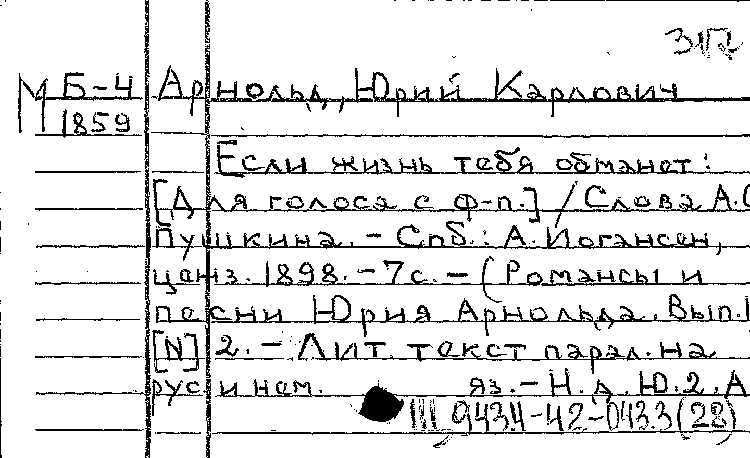 317
М Б-4 Арнольд, Юрий Карлович
1859
Если жизнь тебя обманет:
[Для голоса с ф-п.] / Слова А.С
Пушкина. - Спб.: А. Иогансен,
ценз. 1898. - 7с. - (Романсы и
песни Юрия Арнольда. Вып. 1
[N] 2. - Лит. текст парал. на
рус и нем. яз. - Н.д. Ю.2.А
III 943.4-42-043.3(28)